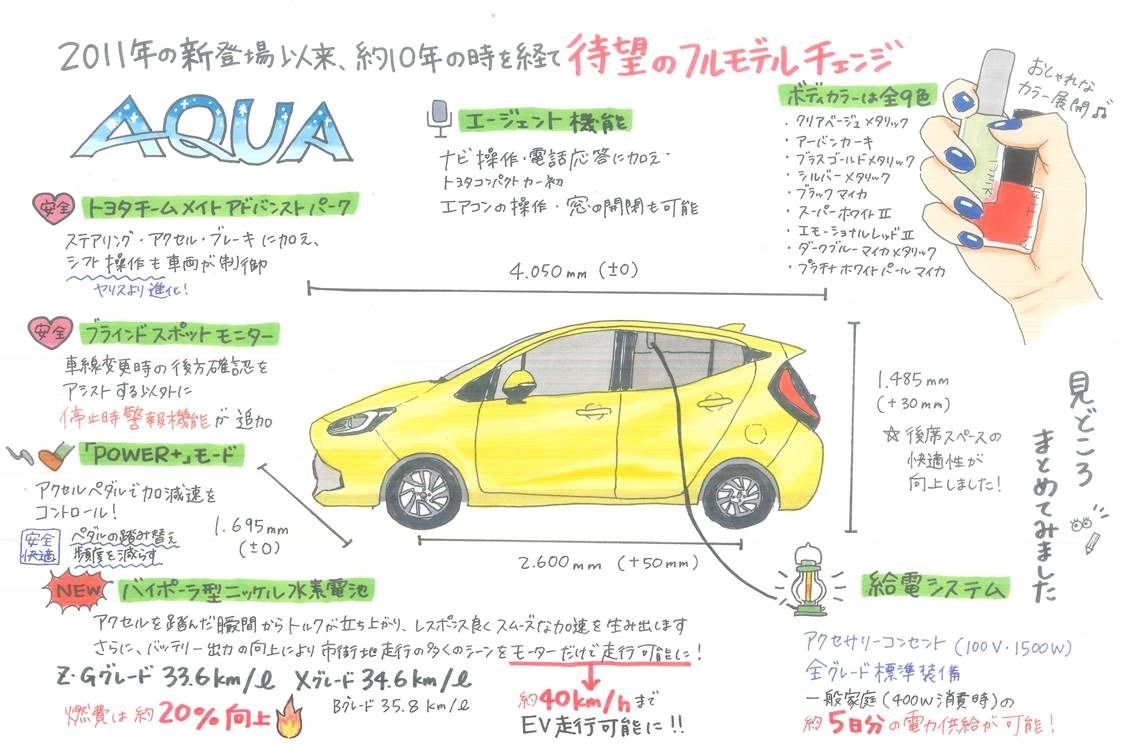 2011年の新登場以来、約10年の時を経て待望のフルモデルチェンジ
AQUA
エージェント機能
ナビ操作・電話応答に加え
トヨタコンパクトカー初
エアコンの操作・窓の開閉も可能
ボディカラーは全9色
・クリアベージュメタリック
・アーバンカーキ
・ブラスゴールドメタリック
・シルバーメタリック
・ブラックマイカ
・スーパーホワイトⅡ
・エモーショナルレッドⅡ
・ダークブルーマイカメタリック
・プラチナホワイトパールマイカ
おしゃれな
カラー展開♫
安全
トヨタチームメイトアドバンストパーク
ステアリング・アクセル・ブレーキに加え、
シフト操作も車両が制御
ヤリスより進化!
安全
ブラインドスポットモニター
車線変更時の後方確認を
アシストする以外に
停止時警報機能が追加
「POWER+」モード
アクセルペダルで加減速を
コントロール!
安全
快適
ペダルの踏み替え
頻度を減らす
4.050mm (±0)
1.485mm
(+30mm)
☆後席スペースの
快適性が
向上しました!
1.695mm
(±0)
2.600mm (+50mm)
見どころ
まとめてみました
NEW
バイポーラ型ニッケル水素電池
アクセルを踏んだ瞬間からトルクが立ち上がり、レスポンス良くスムーズな加速を生み出します
さらに、バッテリー出力の向上により市街地走行の多くのシーンをモーターだけで走行可能に!
Z・Gグレード 33.6km/ℓ Xグレード 34.6km/ℓ
Bグレード 35.8km/ℓ
燃費は約20%向上
約40km/hまで
EV走行可能に!!
給電システム
アクセサリーコンセント(100V・1500W)
全グレード標準装備
一般家庭(400W消費時)の
約5日分の電力供給が可能!